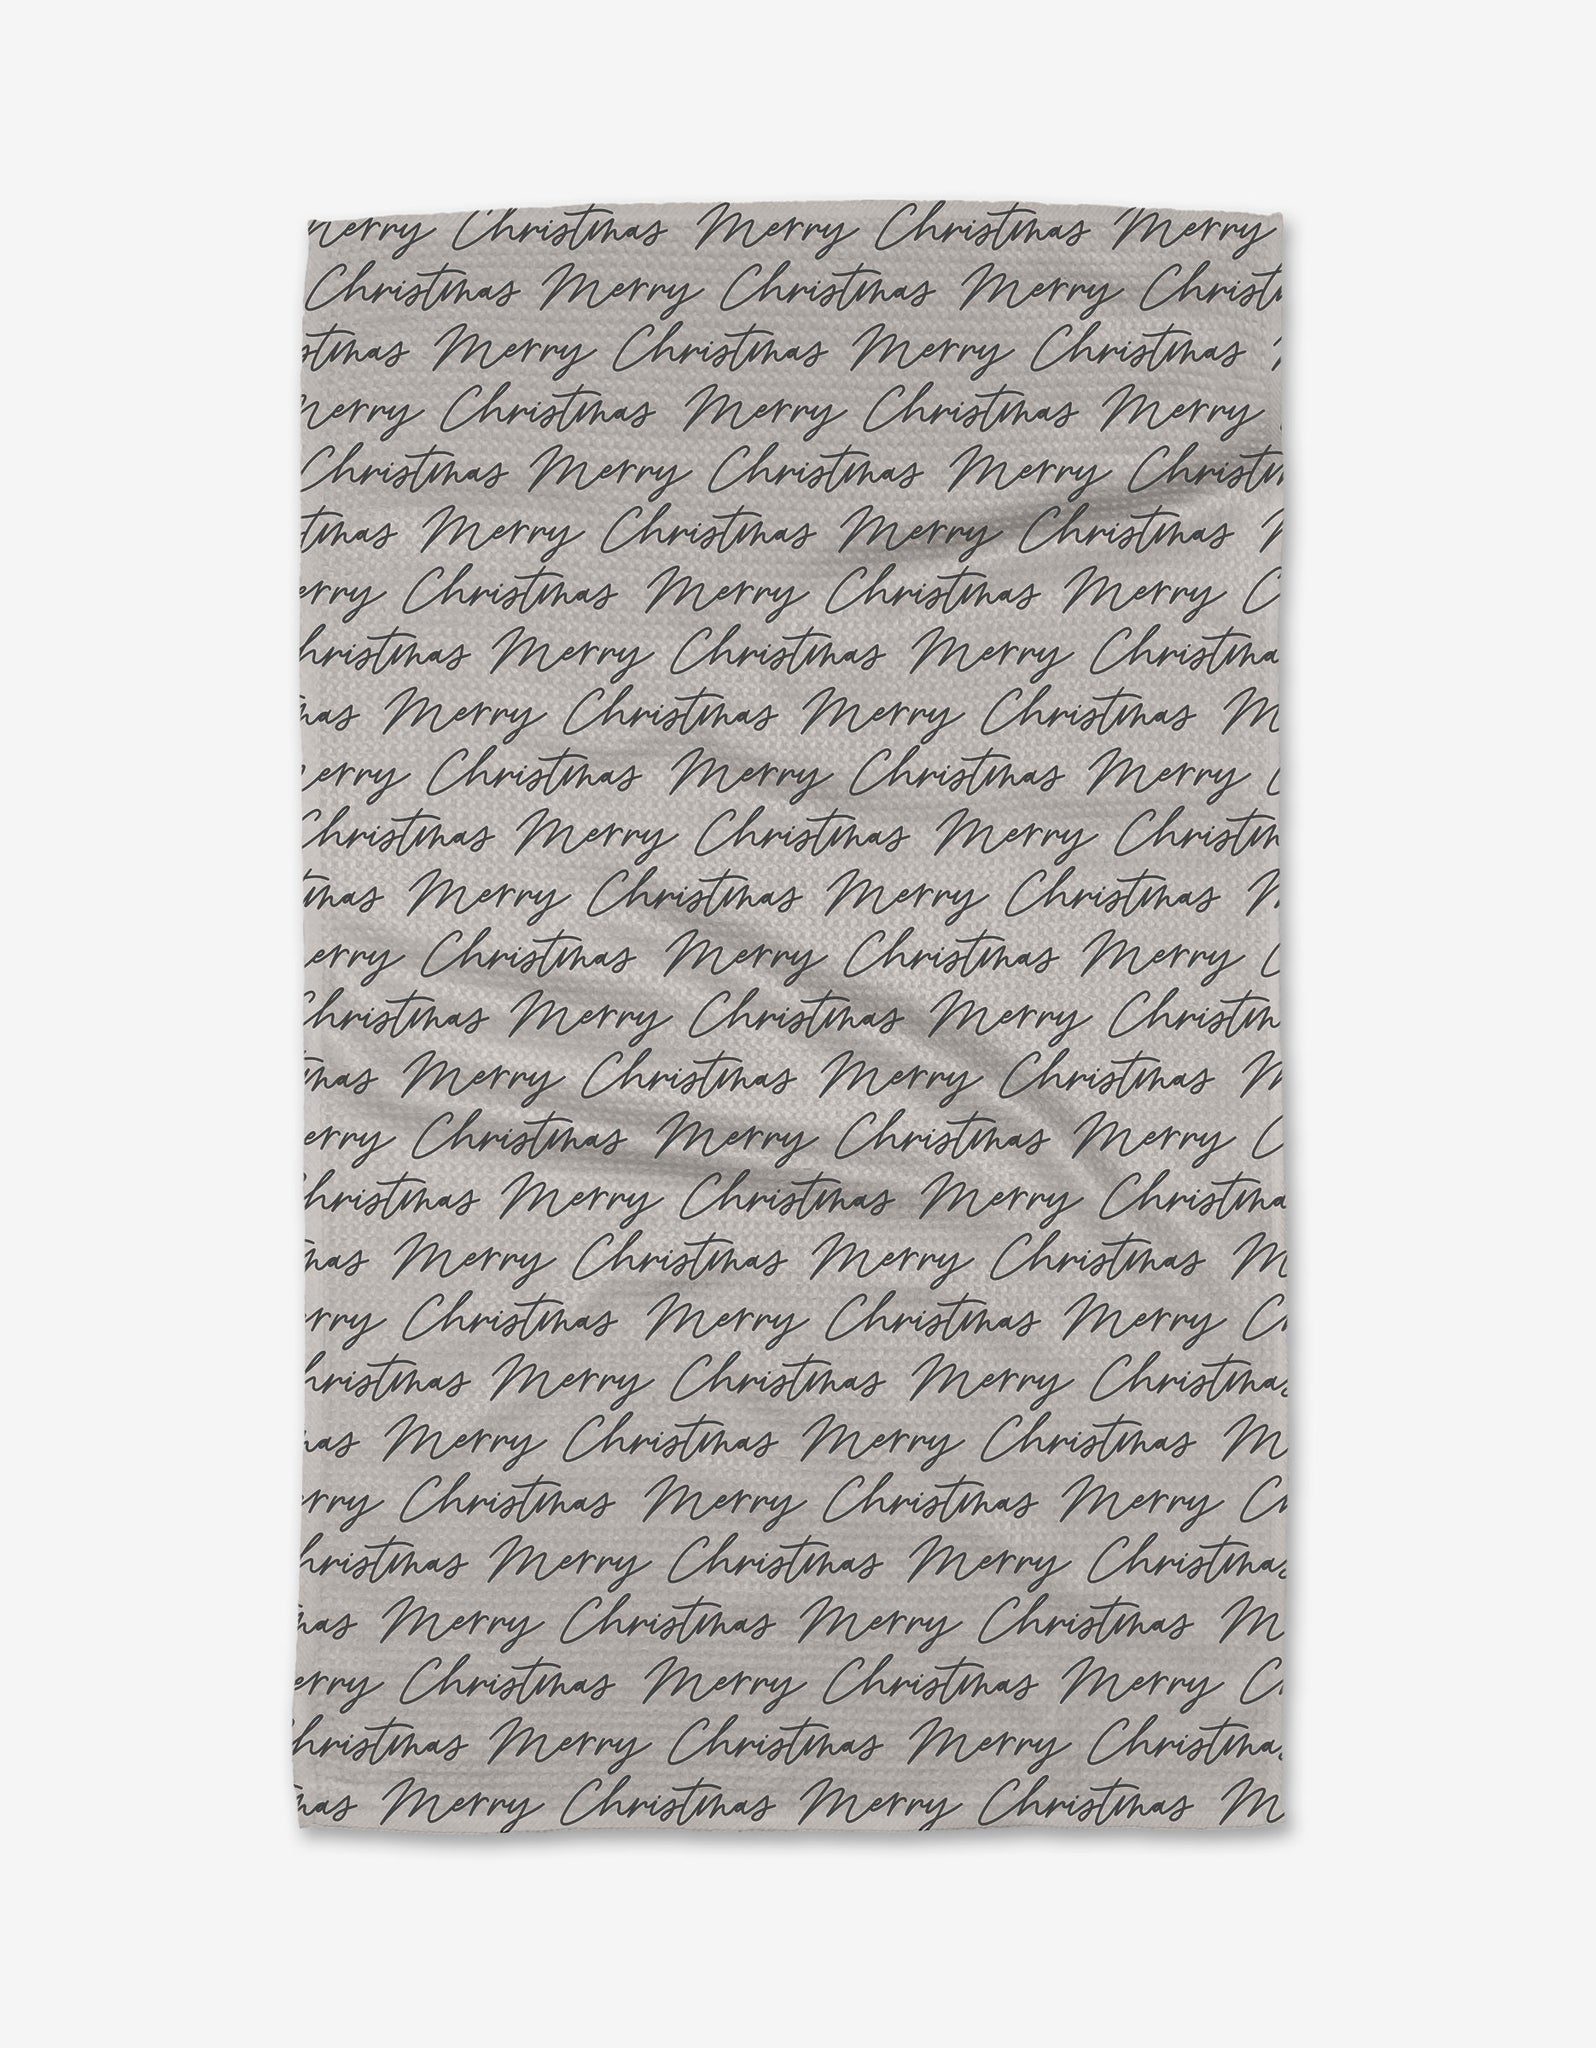 merry Christmas Merry Christmas Merry
Christmas Merry Christmas Merry Christm
stmas Merry Christmas Merry Christmas
Merry Christmas Merry Christmas Merry
Christmas Merry Christmas Merry Christm
tmas Merry Christmas Merry Christmas M
erry Christmas Merry Christmas Merry C
hristmas Merry Christmas Merry Christma
mas Merry Christmas Merry Christmas M
erry Christmas Merry Christmas Merry C
Christmas Merry Christmas Merry Christm
tmas Merry Christmas Merry Christmas M
erry Christmas Merry Christmas Merry C
Christmas Merry Christmas Merry Christm
tmas Merry Christmas Merry Christmas M
erry Christmas Merry Christmas Merry C
hristmas Merry Christmas Merry Christma
mas Merry Christmas Merry Christmas M
erry Christmas Merry Christmas Merry C
hristmas Merry Christmas Merry Christmas
mas Merry Christmas Merry Christmas M
rry Christmas Merry Christmas Merry C
hristmas Merry Christmas Merry Christmas
mas Merry Christmas Merry Christmas M
erry Christmas Merry Christmas Merry C
Christmas Merry Christmas Merry Christmas
mas Merry Christmas Merry Christmas M